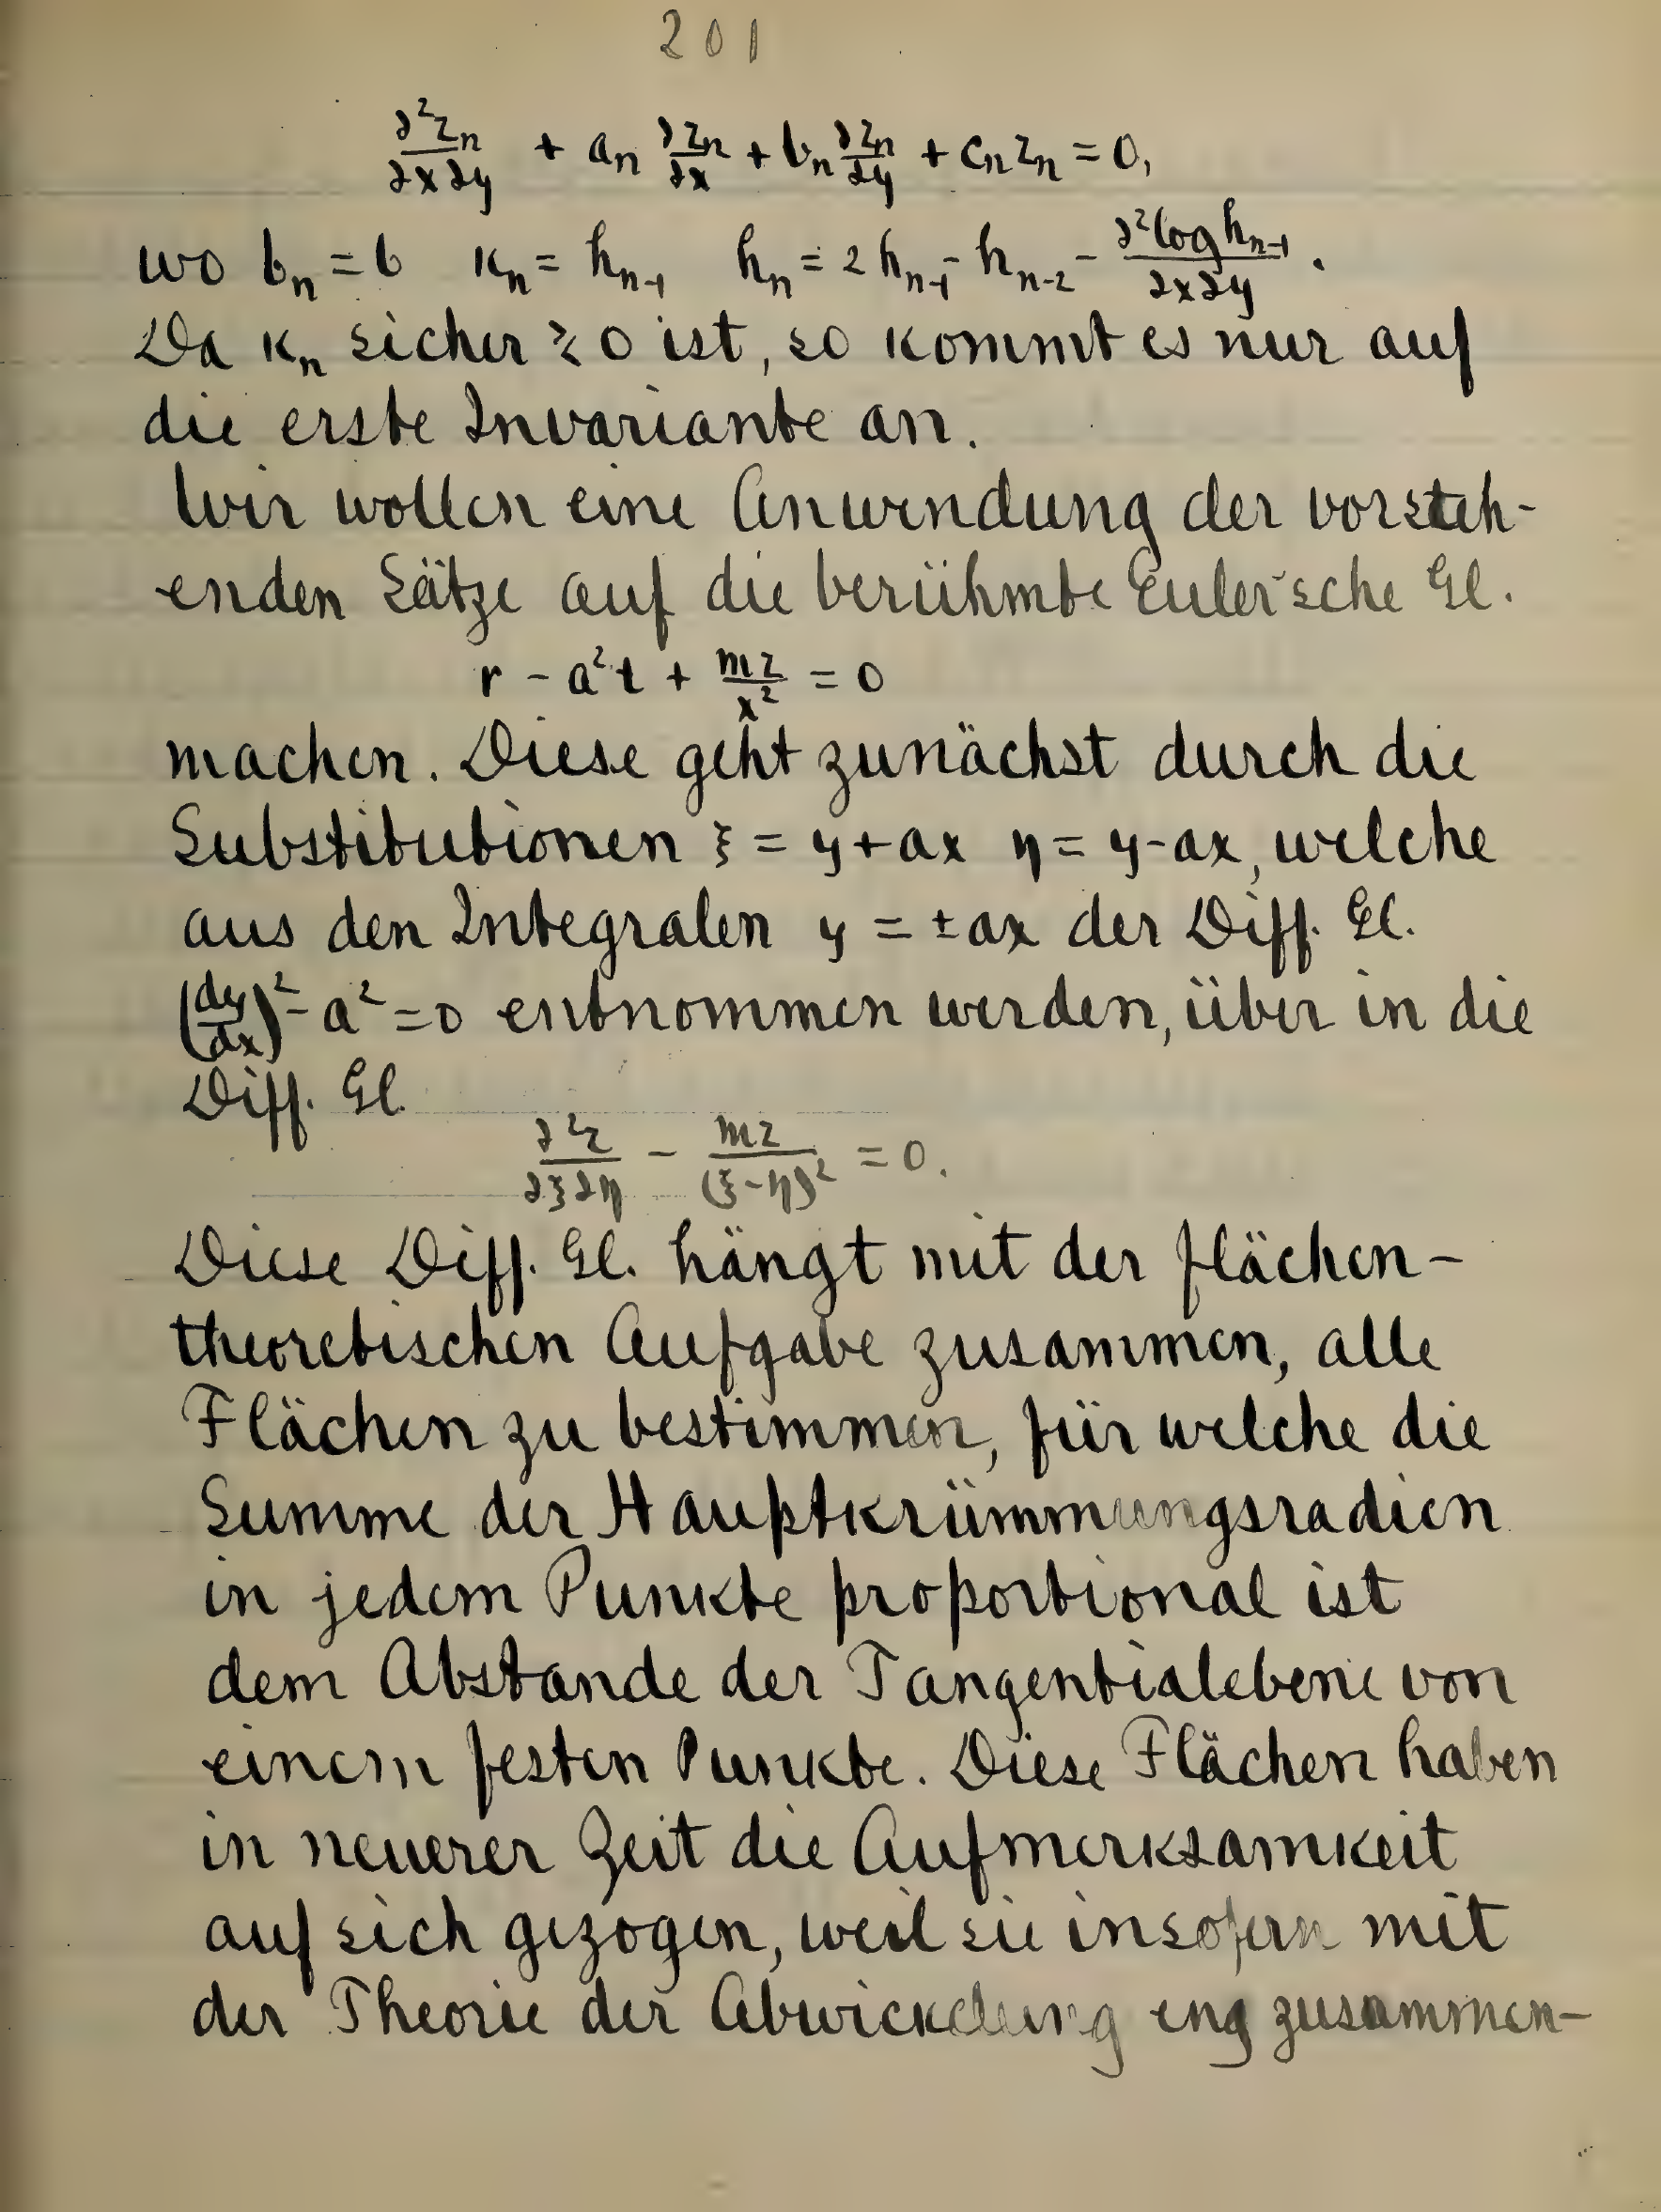 201
∂²zₙ/∂x∂y + aₙ ∂zₙ/∂x + bₙ ∂zₙ/∂y + cₙzₙ = 0,
wo bₙ = b κₙ = hₙ₋₁ hₙ = 2hₙ₋₁ - hₙ₋₂ - ∂²log hₙ₋₁/∂x∂y .
Da κₙ sicher ≷ 0 ist, so kommt es nur auf
die erste Invariante an.
Wir wollen eine Anwendung der vorsteh-
enden Sätze auf die berühmte Euler'sche Gl.
r - a²t + mz/x² = 0
machen. Diese geht zunächst durch die
Substitutionen ξ = y+ax η = y-ax, welche
aus den Integralen y = ±ax der Diff. Gl.
(dy/dx)² - a² = 0 entnommen werden, über in die
Diff. Gl.
∂²z/∂ξ∂η - mz/(ξ-η)² = 0.
Diese Diff. Gl. hängt mit der flächen-
theoretischen Aufgabe zusammen, alle
Flächen zu bestimmen, für welche die
Summe der Hauptkrümmungsradien
in jedem Punkte proportional ist
dem Abstande der Tangentialebene von
einem festen Punkte. Diese Flächen haben
in neuerer Zeit die Aufmerksamkeit
auf sich gezogen, weil sie insofern mit
der Theorie der Abwickelung eng zusammen-